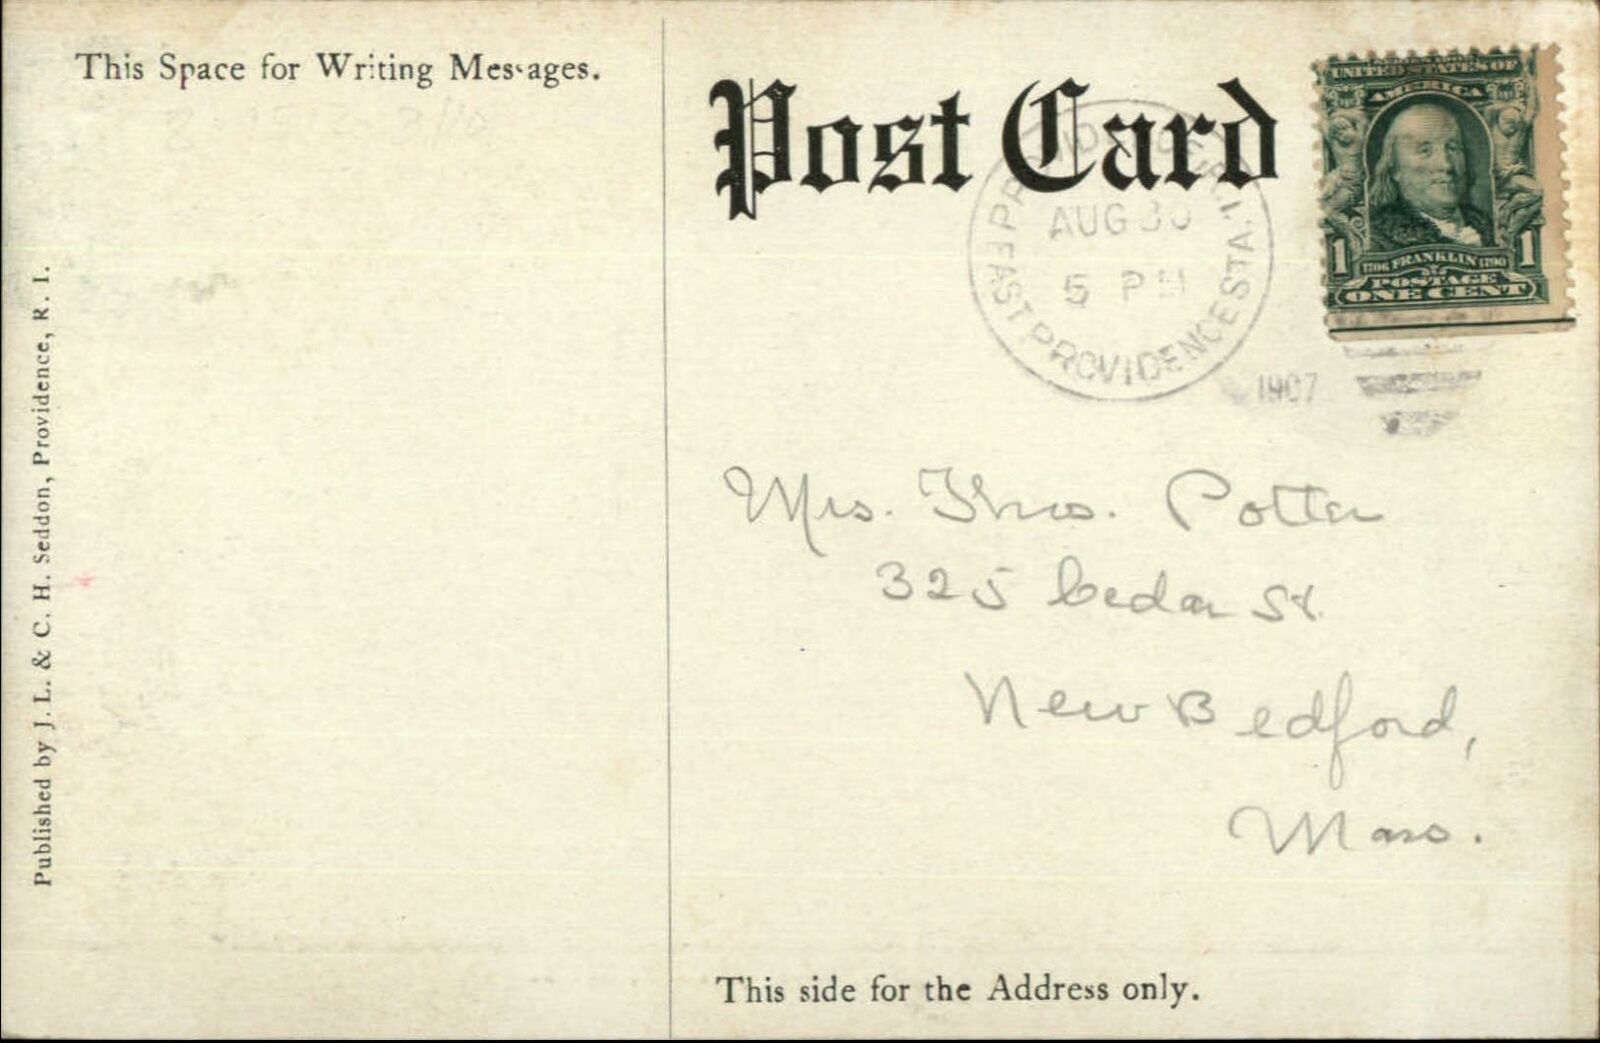 This Space for Writing Messages.
Post Card
UNITED STATES OF
AMERICA
1 1
1706 FRANKLIN 1790
POSTAGE
ONE CENT
PROVIDENCE, R.I.
AUG 30
5 PM
EAST PROVIDENCE STA.
1907
Mrs. Thos. Potter
325 Cedar St.
New Bedford,
Mass.
This side for the Address only.
Published by J. L. & C. H. Seddon, Providence, R. I.